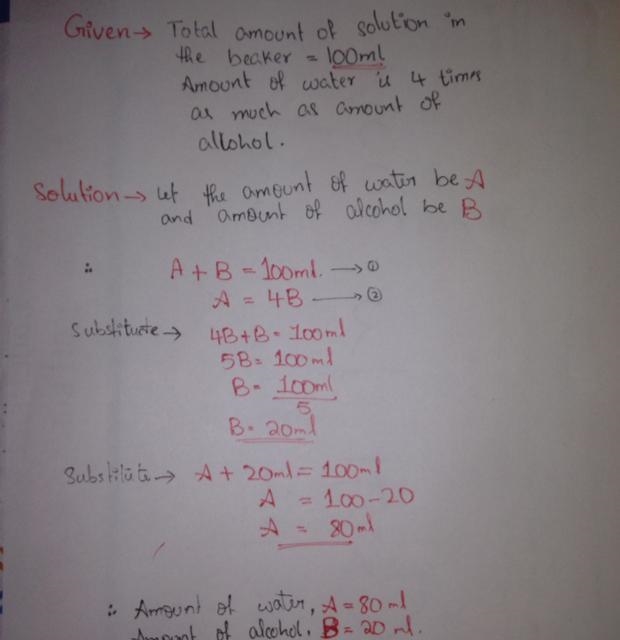 Given → Total amount of solution in
the beaker = 100ml
Amount of water is 4 times
as much as amount of
allohol.
Solution → let the amount of water be A
and amount of alcohol be B
∴ A + B = 100ml. → ①
A = 4B → ②
Substitute → 4B+B = 100ml
5B = 100ml
B = 100ml
5
B = 20ml
Substitute → A + 20ml = 100ml
A = 100-20
A = 80ml
∴ Amount of water, A = 80 ml
Amount of alcohol, B = 20 ml.